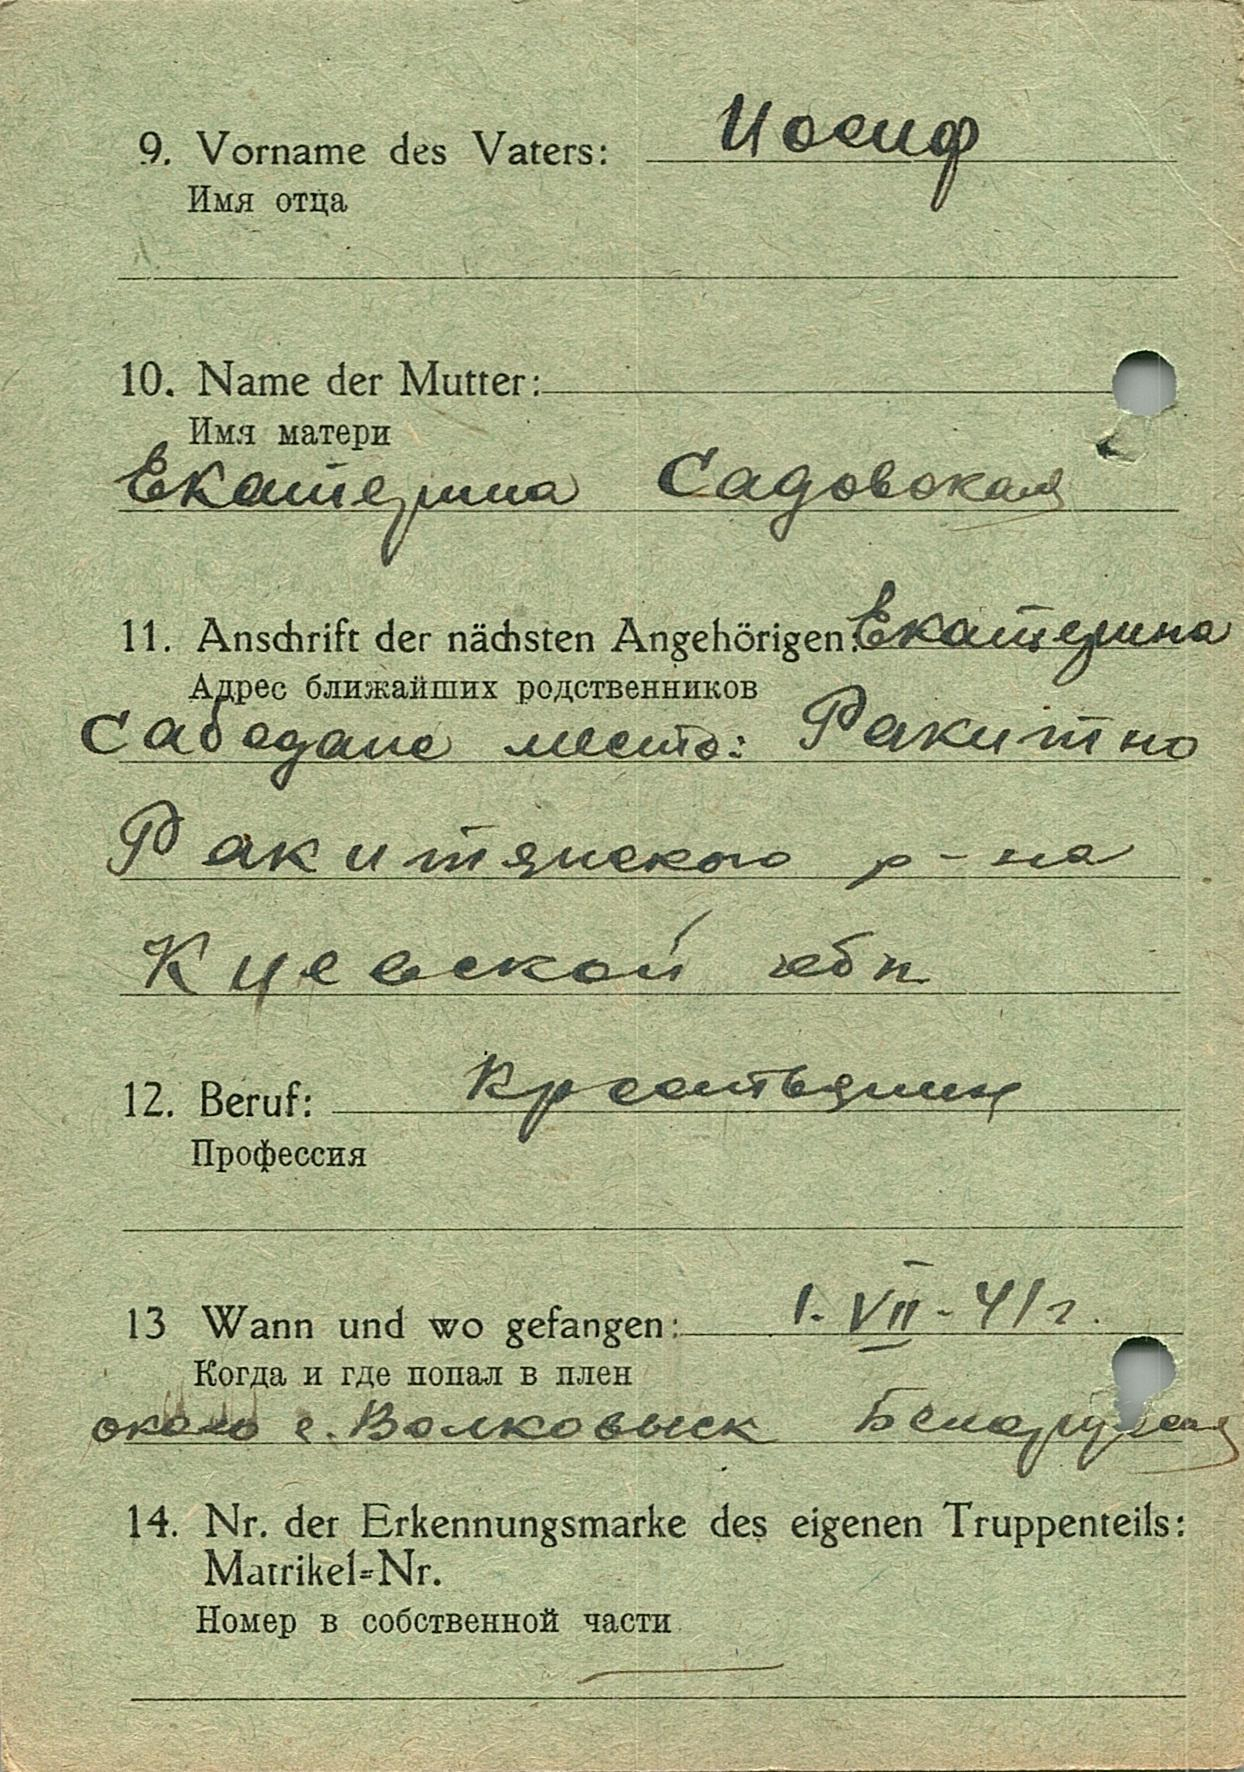 9. Vorname des Vaters: Иосиф
Имя отца
10. Name der Mutter:
Имя матери
Екатерина Садовская
11. Anschrift der nächsten Angehörigen: Екатерина
Адрес ближайших родственников
место: Ракитно
Ракитянского р-на
Киевской обл
12. Beruf: Крестьянин
Профессия
13 Wann und wo gefangen: 1. VII - 41 г.
Когда и где попал в плен
около г. Волковыск
14. Nr. der Erkennungsmarke des eigenen Truppenteils:
Matrikel=Nr.
Номер в собственной части